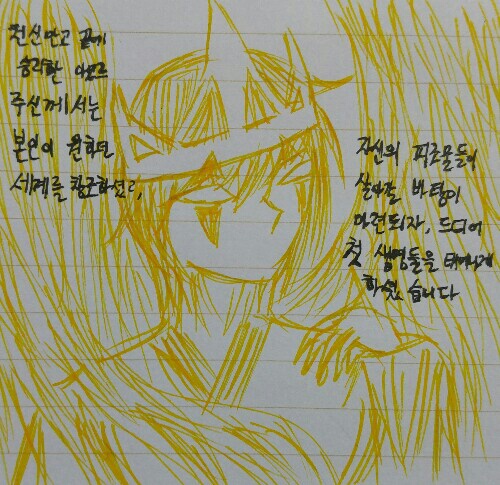 전신만고 끝에
승리한
주신께서는
본인이 원하던
세계를 창조하셨고,
자신의 피조물들이
살아갈 바탕이
마련되자, 드디어
첫 생명들을 태어나게
하셨습니다